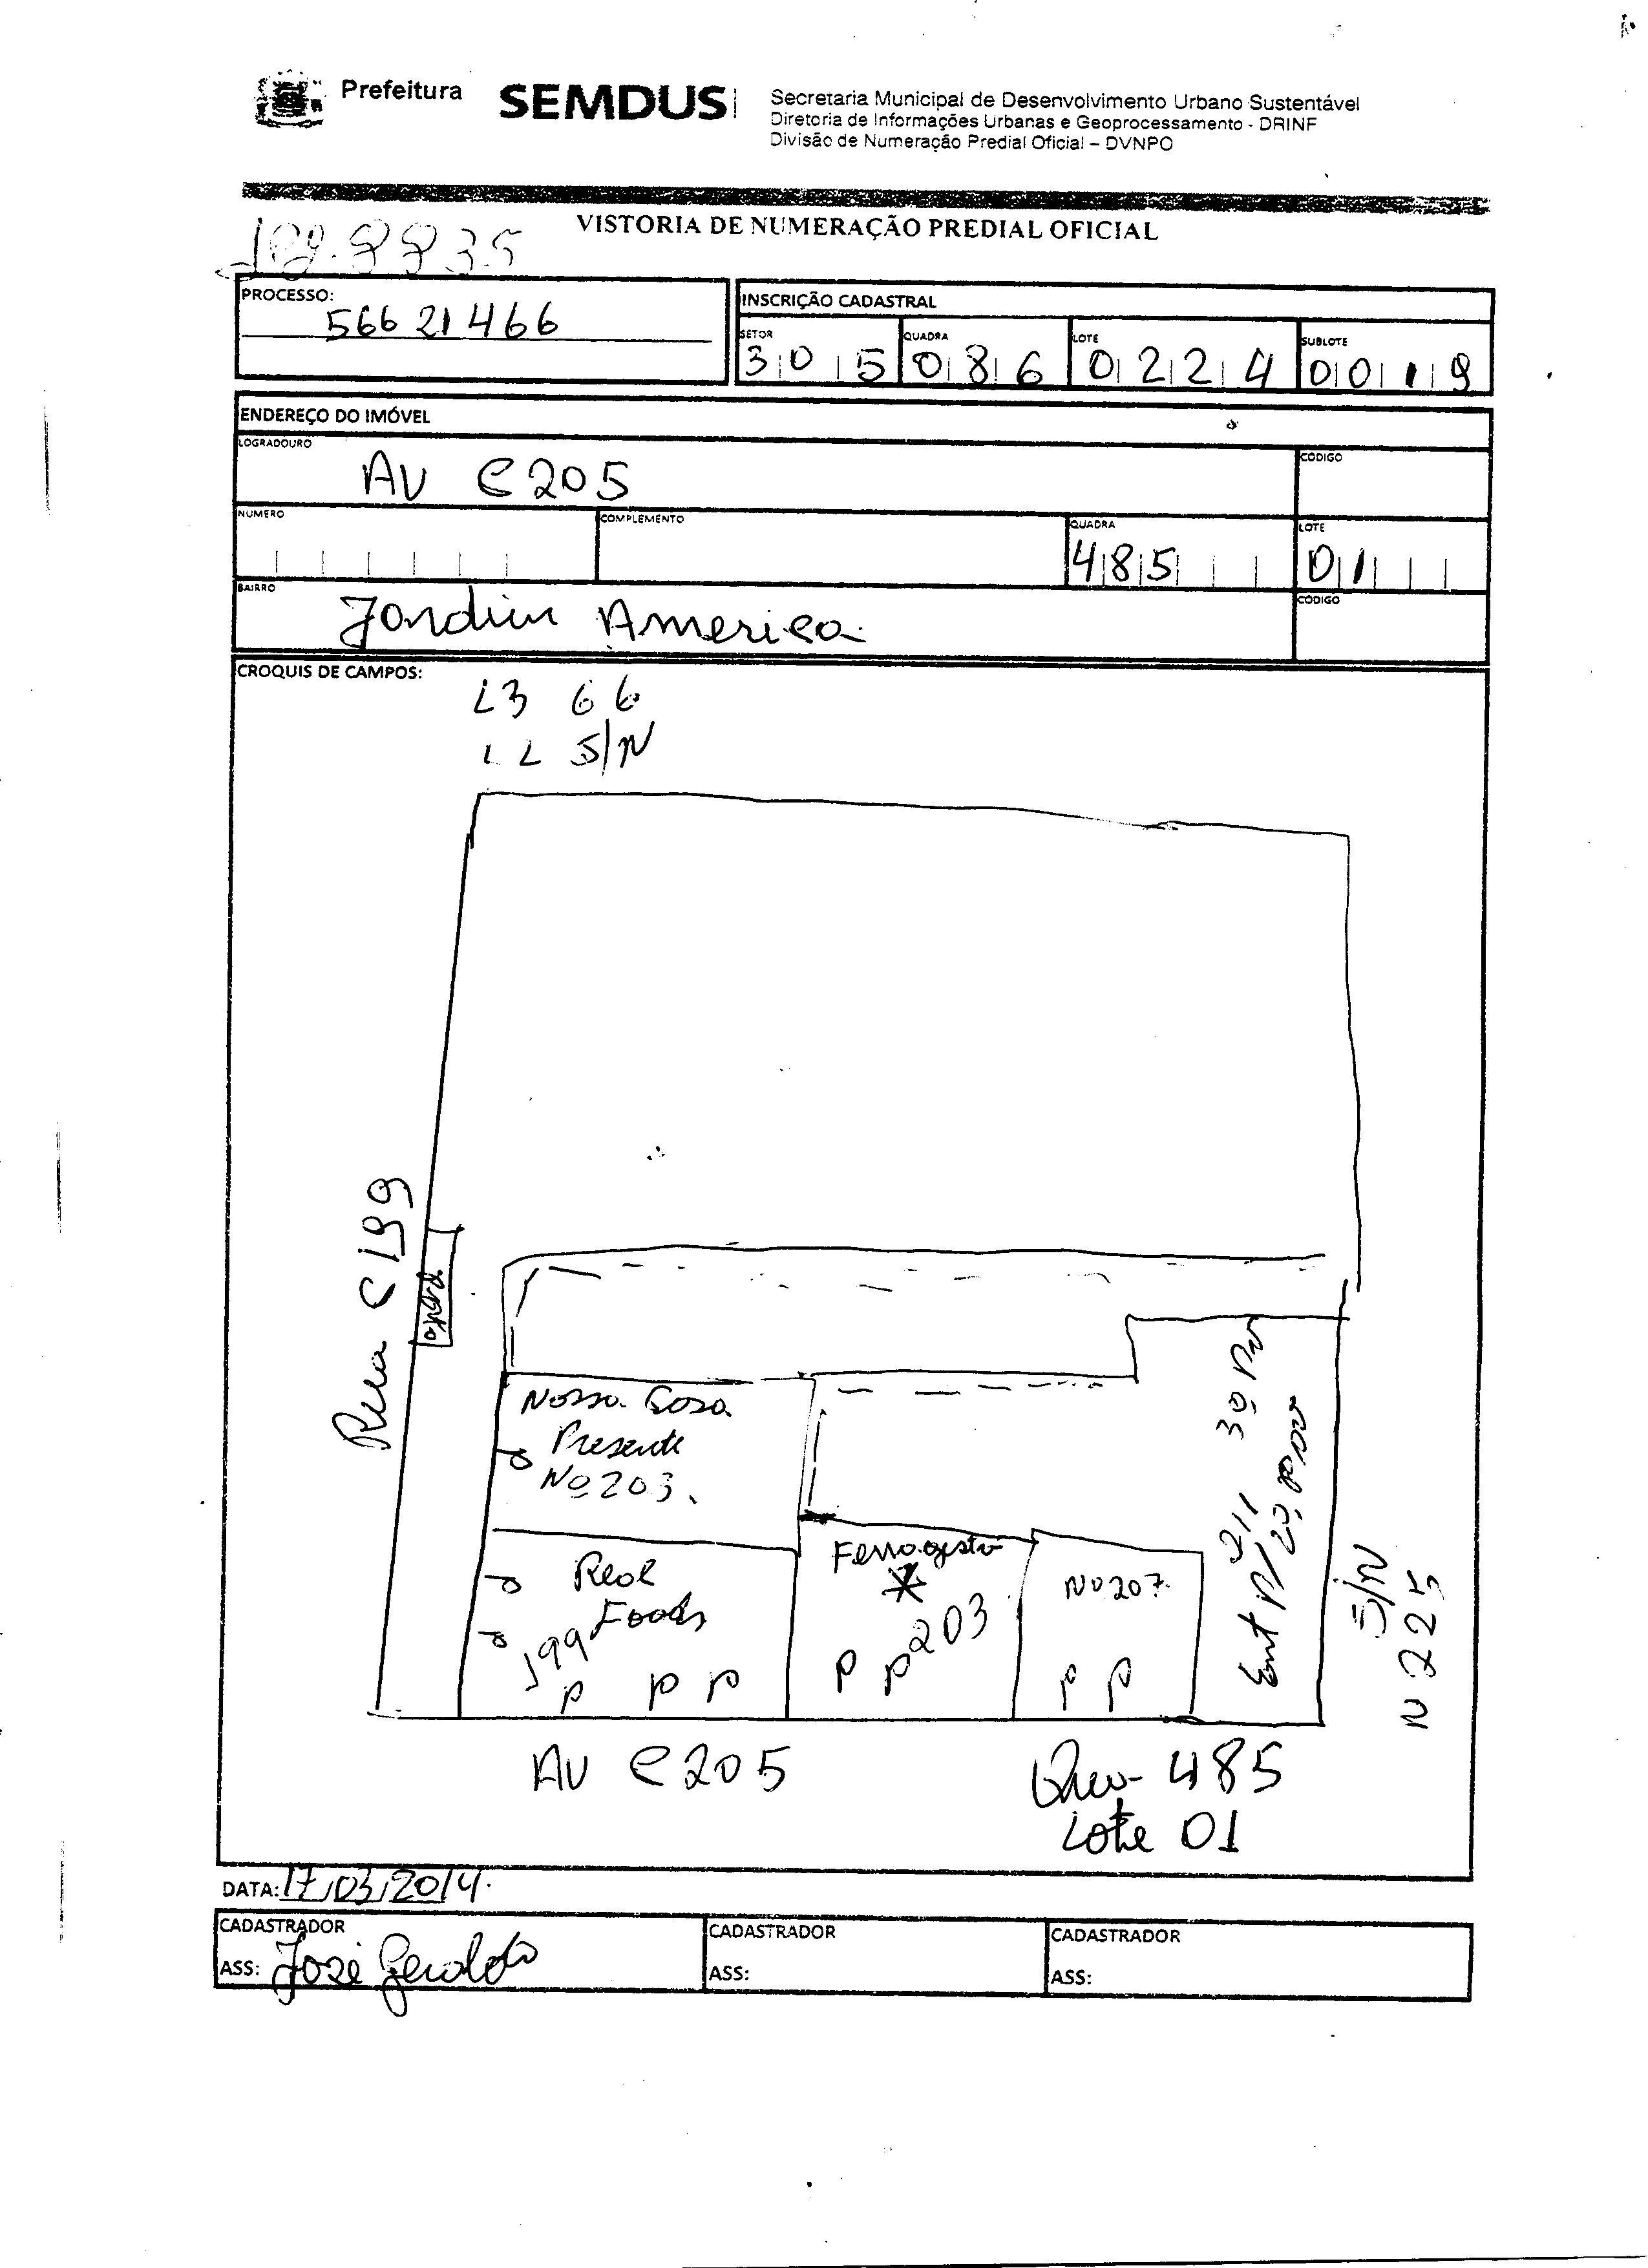 Prefeitura
SEMDUS
Secretaria Municipal de Desenvolvimento Urbano Sustentável
Diretoria de Informações Urbanas e Geoprocessamento - DRINF
Divisão de Numeração Predial Oficial – DVNPO
VISTORIA DE NUMERAÇÃO PREDIAL OFICIAL
PROCESSO:
56621466
INSCRIÇÃO CADASTRAL
SETOR QUADRA LOTE SUBLOTE
305 086 0224 0019
ENDEREÇO DO IMÓVEL
LOGRADOURO
AV C205
CÓDIGO
NUMERO
COMPLEMENTO
QUADRA
485
LOTE
01
BAIRRO
Jardim America
CÓDIGO
CROQUIS DE CAMPOS:
L3 66
L2 S/N
Rua C199
Nossa Casa
Presente
Nº 203.
Real
Foods
199
P P P
203
P P
Nº 207.
P P
Ent P/ 2º
211
3º
S/N
N 225
AV C205
Qua- 485
Lote 01
DATA: 17/03/2014.
CADASTRADOR
ASS: José Geraldo
CADASTRADOR
ASS:
CADASTRADOR
ASS: